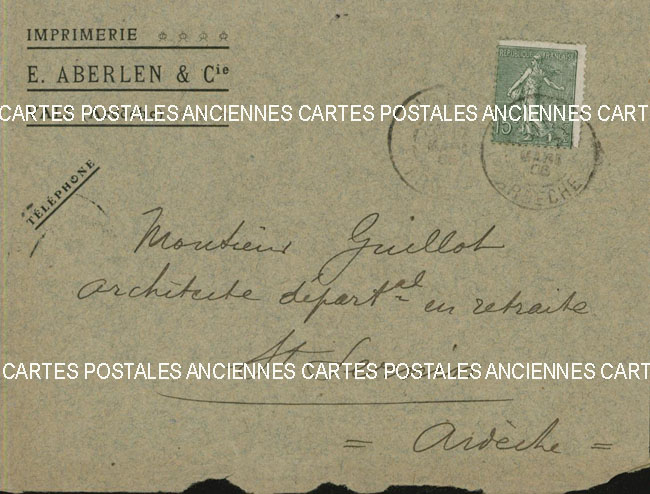 IMPRIMERIE
E. ABERLEN & Cie
CARTES POSTALES ANCIENNES CARTES POSTALES ANCIENNES CART
TÉLÉPHONE
RÉPUBLIQUE FRANÇAISE
15
ARDÈCHE
Monsieur Guillot
architecte départal en retraite
St
CARTES POSTALES ANCIENNES CARTES POSTALES ANCIENNES CART
= Ardèche =